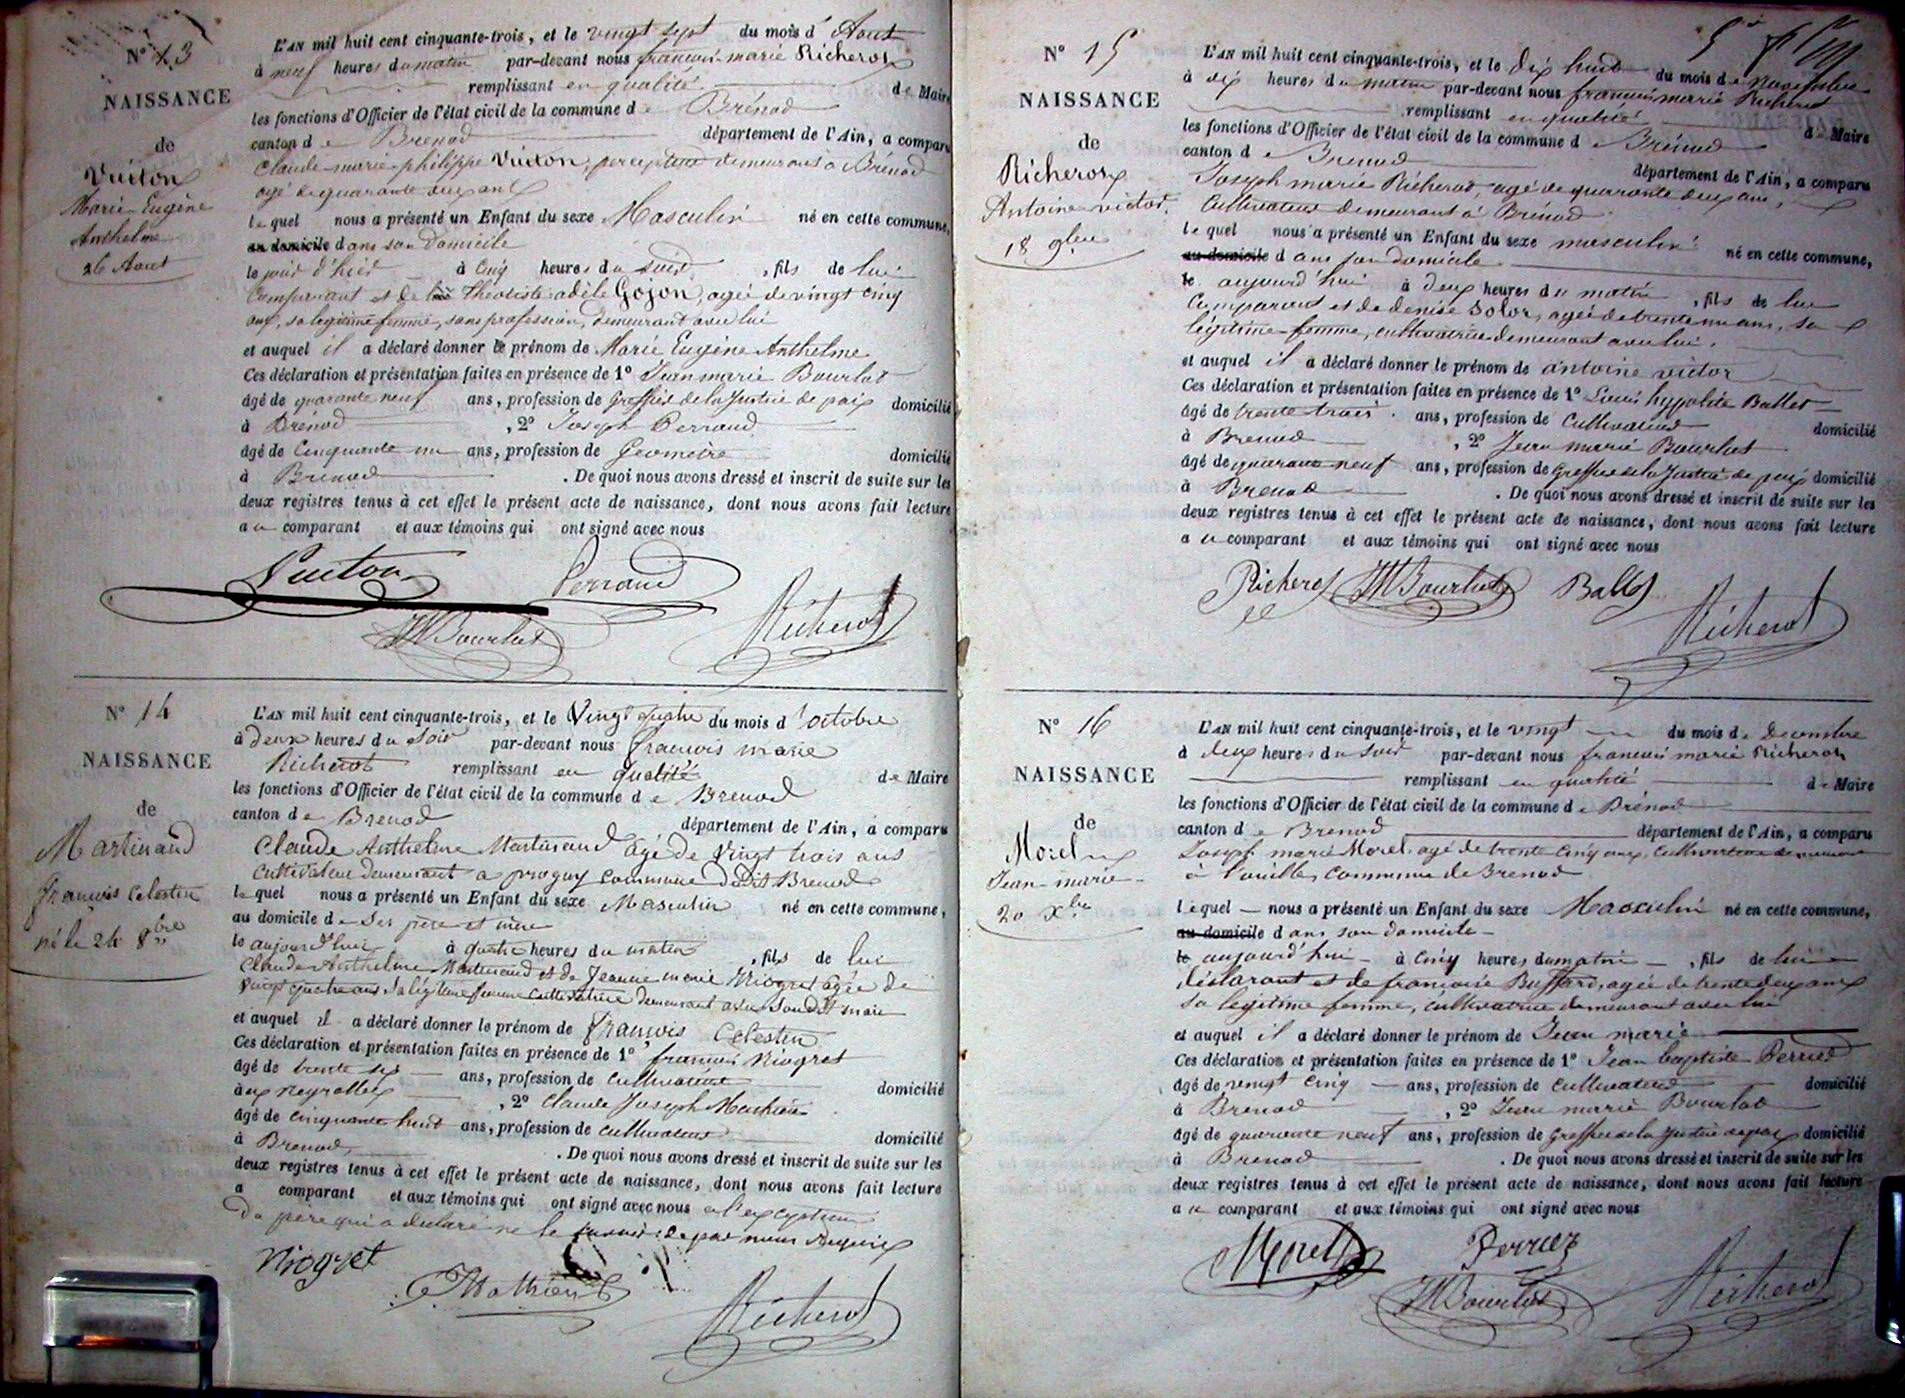 N° 13
NAISSANCE
de
Vuiton
Marie Eugène
Anthelme
26 Aout
L'AN mil huit cent cinquante-trois, et le vingt sept du mois d'Aout
à neuf heures du matin par-devant nous françois marie Richerot
remplissant en qualité de Maire
les fonctions d'Officier de l'état civil de la commune de Brénod
canton de Brenod département de l'Ain, a comparu
Claude marie philippe Vuiton, percepteur demeurant à Brénod
agé de quarante deux ans
lequel nous a présenté un Enfant du sexe Masculin né en cette commune,
au domicile dans son Domicile
le jour d'hier à cinq heures du soir, fils de lui
Comparant et de Théotiste adèle Gojon, agée de vingt cinq
ans, sa legitime femme, sans profession, demeurant avec lui
et auquel il a déclaré donner le prénom de Marie Eugène Anthelme
Ces déclaration et présentation faites en présence de 1° Jean marie Bourlot
âgé de quarante neuf ans, profession de Greffier de la Justice de paix domicilié
à Brénod, 2° Joseph Perraud
âgé de Cinquante un ans, profession de Geometre domicilié
à Brenod. De quoi nous avons dressé et inscrit de suite sur les
deux registres tenus à cet effet le présent acte de naissance, dont nous avons fait lecture
au comparant et aux témoins qui ont signé avec nous
Vuiton Perraud
JM Bourlot Richerot
N° 14
NAISSANCE
de
Martinand
François Celestin
né le 24 8bre
L'AN mil huit cent cinquante-trois, et le Vingt quatre du mois d'octobre
à deux heures du soir par-devant nous françois marie
Richerot remplissant en qualité de Maire
les fonctions d'Officier de l'état civil de la commune de Brenod
canton de Brenod département de l'Ain, a comparu
Claude Anthelme Martinand âgé de Vingt trois ans
cultivateur demeurant a commune dudit Brenod
lequel nous a présenté un Enfant du sexe Masculin né en cette commune,
au domicile de Ses père et mère
le aujourd'hui à quatre heures du matin, fils de lui
Claude Anthelme Martinand et de Jeanne marie Niogret agée de
vingt quatre ans Sa légitime femme Cultivatrice demeurant avec Son dit mari
et auquel il a déclaré donner le prénom de François Celestin
Ces déclaration et présentation faites en présence de 1° francois Niogret
âgé de trente six ans, profession de cultivateur domicilié
aux neyrolles, 2° Claude Joseph Mathieu
âgé de cinquante huit ans, profession de cultivateur domicilié
à Brenod. De quoi nous avons dressé et inscrit de suite sur les
deux registres tenus à cet effet le présent acte de naissance, dont nous avons fait lecture
a comparant et aux témoins qui ont signé avec nous a l'exception
Du père qui a declaré ne le savoir de par nous Requis
Niogret
Mathieu Richerot
N° 15
NAISSANCE
de
Richerot
Antoine victor.
18 9bre
L'AN mil huit cent cinquante-trois, et le dix huit du mois de novembre
à dix heures du matin par-devant nous françois marie Richerot
remplissant en qualité de Maire
les fonctions d'Officier de l'état civil de la commune de Brénod
canton de Brenod département de l'Ain, a comparu
Joseph marie Richerot, agé de quarante deux ans,
Cultivateur demeurant à Brénod
lequel nous a présenté un Enfant du sexe masculin né en cette commune,
au domicile dans son domicile
le aujourd'hui à deux heures du matin, fils de lui
Comparant et de denise Solor, agée de trente un ans, sa
légitime femme, cultivatrice demeurant avec lui.
et auquel il a déclaré donner le prénom de antoine victor
Ces déclaration et présentation faites en présence de 1° Louis hypolite Ballet
âgé de trente trois ans, profession de Cultivateur domicilié
à Brenod, 2° Jean marie Bourlot
âgé de quarante neuf ans, profession de Greffier de la Justice de paix domicilié
à Brenod. De quoi nous avons dressé et inscrit de suite sur les
deux registres tenus à cet effet le présent acte de naissance, dont nous avons fait lecture
au comparant et aux témoins qui ont signé avec nous
Richerot JM Bourlot Ballet
Richerot
N° 16
NAISSANCE
de
Morel
Jean-marie
20 Xbre
L'AN mil huit cent cinquante-trois, et le vingt du mois de Decembre
à deux heures du soir par-devant nous françois marie Richerot
remplissant en qualité de Maire
les fonctions d'Officier de l'état civil de la commune de Brénod
canton de Brenod département de l'Ain, a comparu
Joseph marie Morel, agé de trente cinq ans, cultivateur demeurant
à commune de Brenod
lequel nous a présenté un Enfant du sexe Masculin né en cette commune,
au domicile dans son domicile
le aujourd'hui à cinq heures du matin, fils de lui
déclarant et de françoise Buffard, agée de trente deux ans
sa legitime femme, cultivatrice demeurant avec lui
et auquel il a déclaré donner le prénom de Jean marie
Ces déclaration et présentation faites en présence de 1° Jean baptiste Perrier
âgé de vingt cinq ans, profession de cultivateur domicilié
à Brenod, 2° Jean marie Bourlot
âgé de quarante neuf ans, profession de Greffier de la Justice de paix domicilié
à Brenod. De quoi nous avons dressé et inscrit de suite sur les
deux registres tenus à cet effet le présent acte de naissance, dont nous avons fait lecture
au comparant et aux témoins qui ont signé avec nous
Morel Perrier
JM Bourlot Richerot